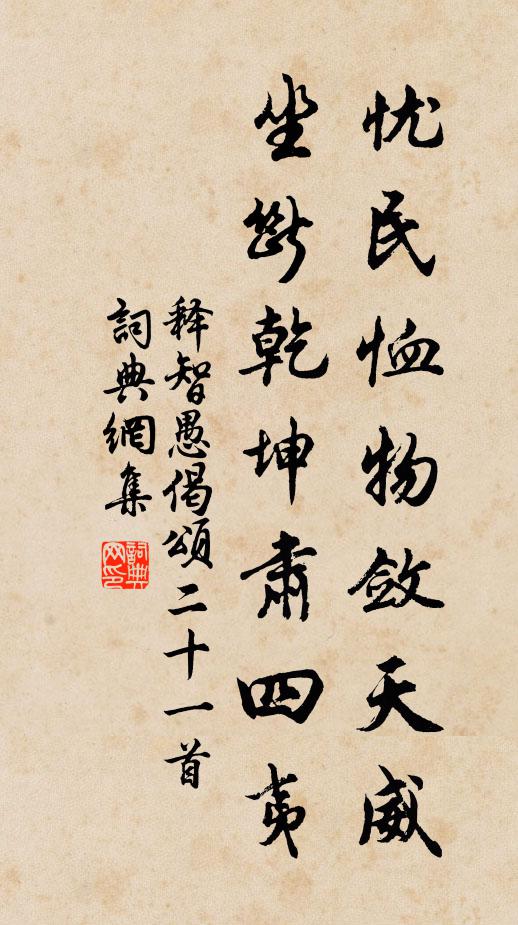 忧民恤物敛天威
坐断乾坤肃四夷
释智愚偈颂二十一首
词典网集
词典网印